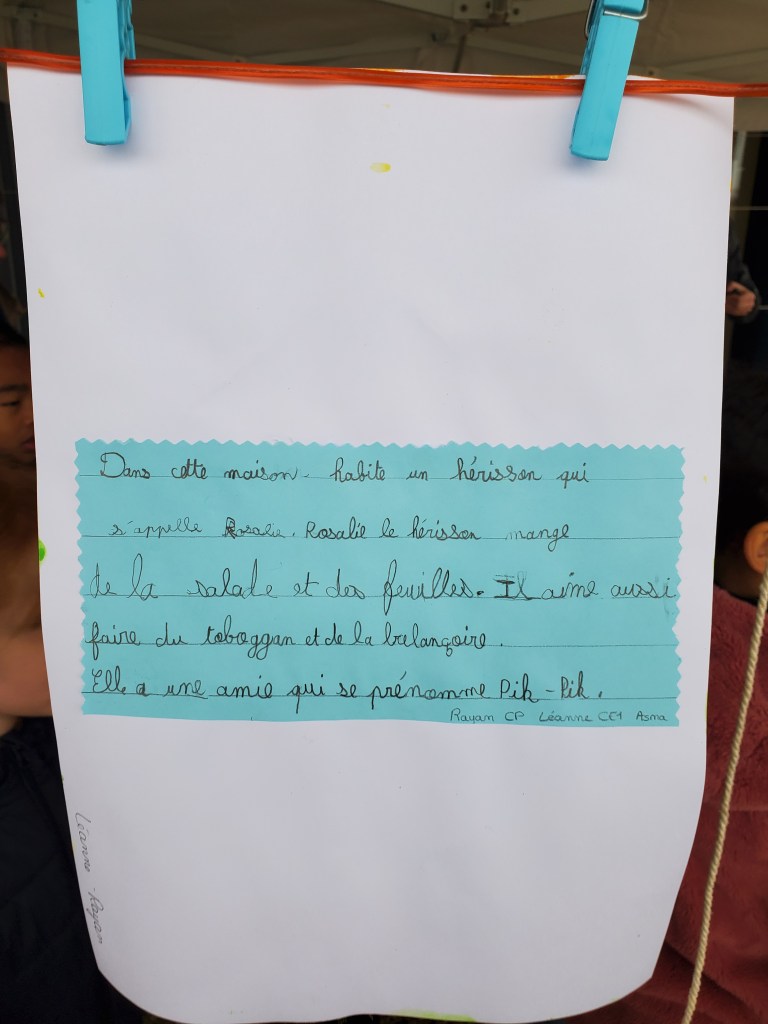 Dans cette maison habite un hérisson qui
s'appelle Rosalie. Rosalie le hérisson mange
de la salade et des feuilles. Il aime aussi
faire du toboggan et de la balançoire.
Elle a une amie qui se prénomme Pik-Pik.
Rayam CP Léanne CE1 Asma
Léanne Rayam